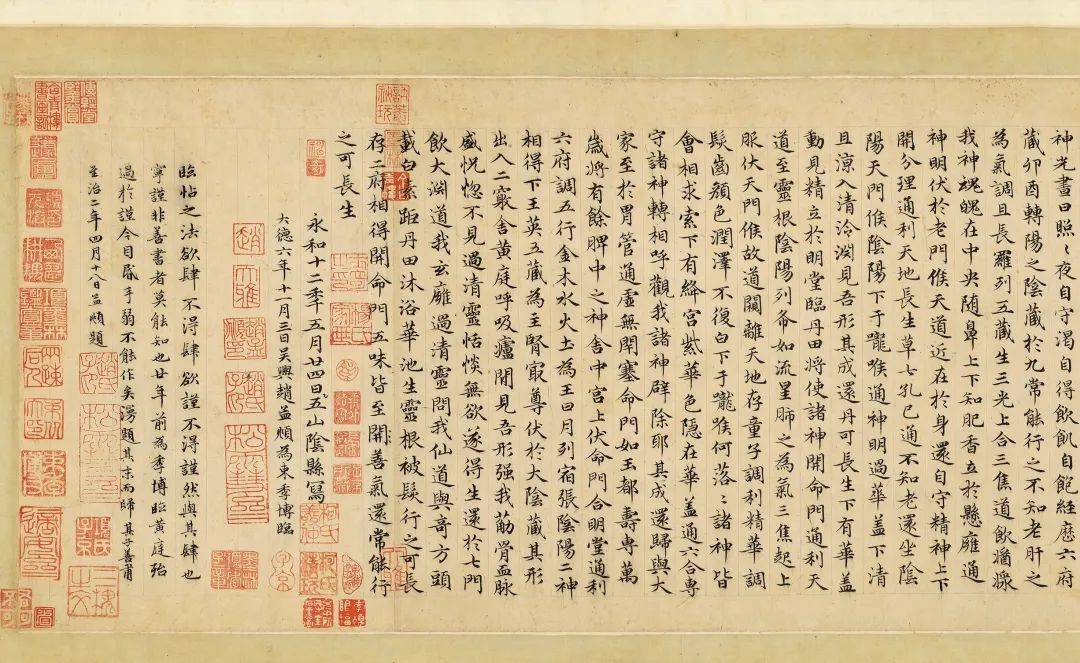 神光晝日照〻夜自守渴自得飲飢自飽經歷六府
藏卯酉轉陽之陰藏於九常能行之不知老肝之
為氣調且長羅列五藏生三光上合三焦道飲漿
我神魂魄在中央随鼻上下知肥香立於懸癰通
神明伏於老門候天道近在於身還自守精神上下
開分理通利天地長生草七孔已通不知老還坐陰
陽天門候陰陽下于嚨喉通神明過華盖下清
且涼入清泠淵見吾形其成還丹可長生下有華盖
動見精立於明堂臨丹田將使諸神開命門通利天
道至靈根陰陽列布如流星肺之為氣三焦起上
服伏天門候故道闚離天地存童子調利精華調
髮齒顏色潤澤不復白下于嚨喉何落〻諸神皆
會相求索下有絳宮紫華色隱在華盖通六合專
守諸神轉相呼觀我諸神辟除耶其成還歸與大
家至於胃管通虛無閉塞命門如玉都壽專萬
歲將有餘脾中之神舍中宮上伏命門合明堂通利
六府調五行金木水火土為王日月列宿張陰陽二神
相得下玉英五藏為主腎冣尊伏於大陰藏其形
出入二竅舍黃庭呼吸廬間見吾形强我筋骨血脉
盛怳惚不見過清靈恬惔無欲遂得生還於七門
飲大淵道我玄癰過清靈問我仙道與奇方頭
載白素距丹田沐浴華池生靈根被髮行之可長
存二府相得開命門五味皆至開善氣還常能行
之可長生
永和十二年五月廿四日五山陰縣寫
大德六年十一月三日吳興趙孟頫為東季博臨
臨帖之法欲肆不得肆欲謹不得謹然與其肆也
寧謹非善書者莫能知也廿年前為季博臨黃庭殆
過於謹今目昏手弱不能作矣漫題其末而歸其士善甫
至治二年四月十八日孟頫題